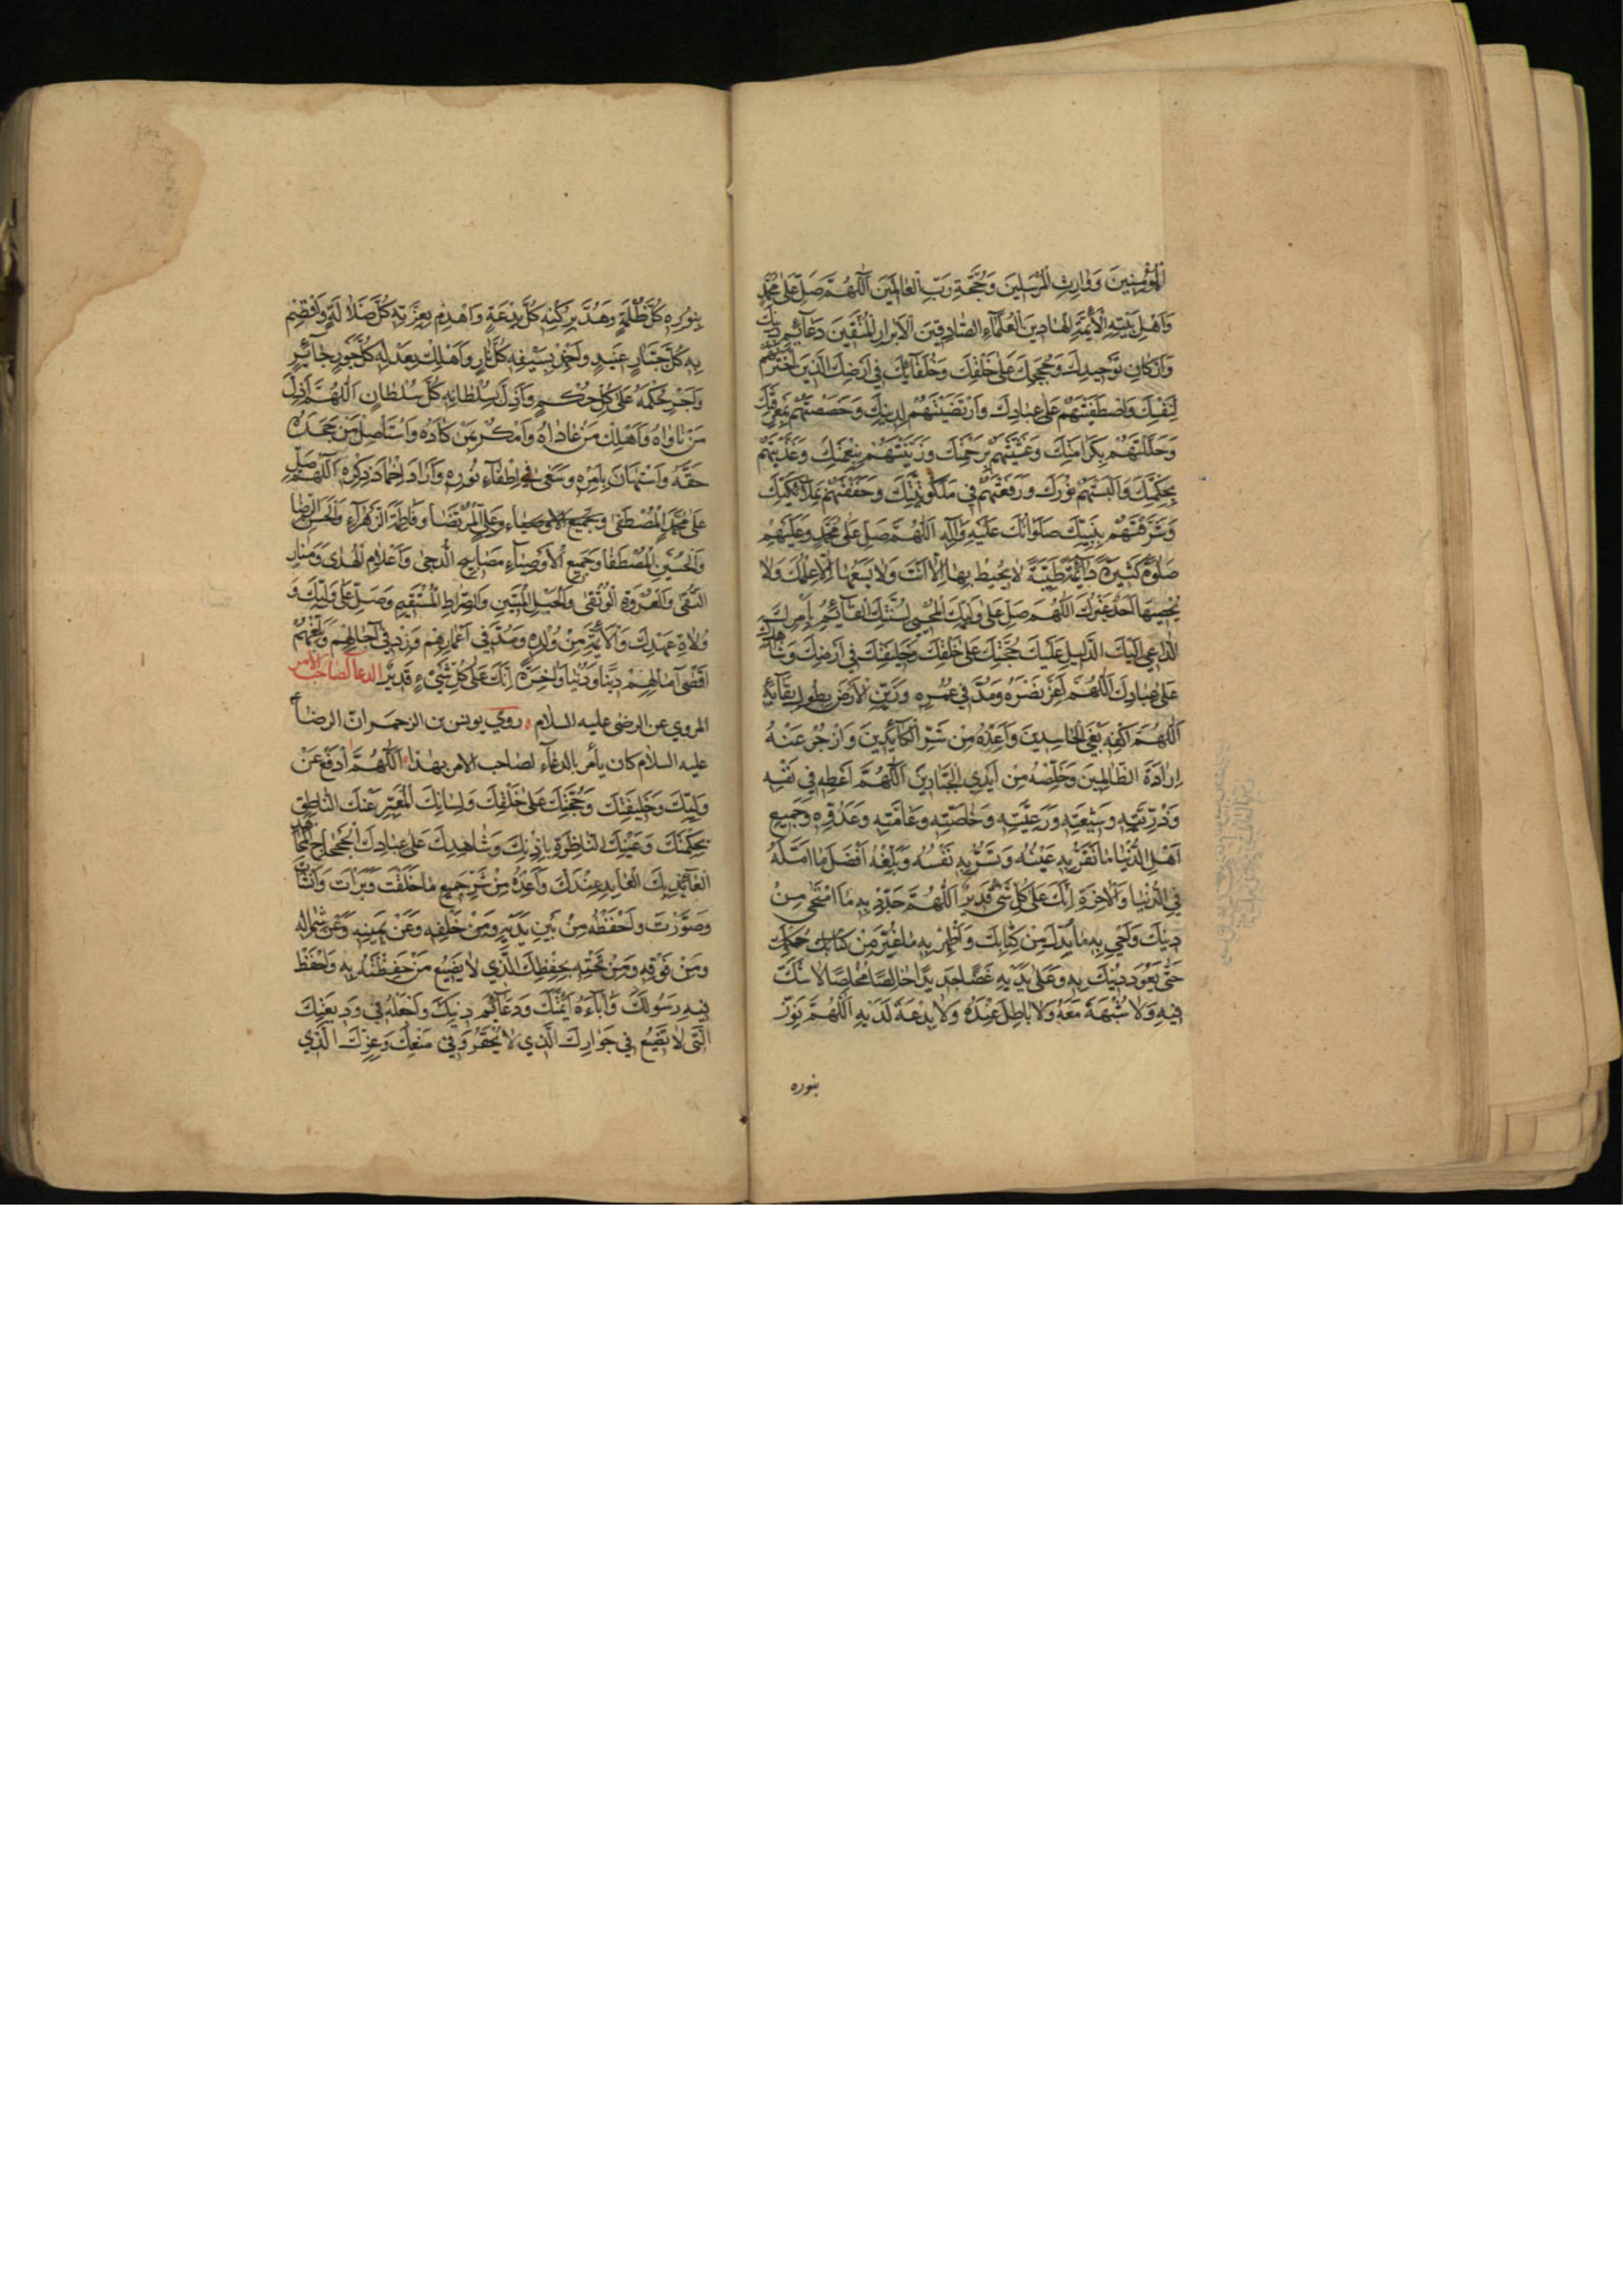 المؤمنين ووارث المرسلين وحجة رب العالمين اللهم صل على محمد
واهل بيته الأئمة الهادين العلماء الصادقين الأبرار المتقين دعائم دينك
واركان توحيدك وحججك على خلقك وخلفائك في ارضك الذين اخترتهم
لنفسك واصطفيتهم على عبادك وارتضيتهم لدينك وخصصتهم بمعرفتك
وجللتهم بكرامتك وغشيتهم برحمتك وزينتهم بنعمتك وغذيتهم
بحكمتك والبستهم نورك ورفعتهم في ملكوتك وحففتهم بملائكتك
وشرفتهم بنبيك صلواتك عليه وآله اللهم صل على محمد وعليهم
صلوة كثيرة دائمة طيبة لا يحيط بها الا انت ولا يسعها الا علمك ولا
يحصيها احد غيرك اللهم صل على وليك المحيي لسنتك القائم بامرك
الداعي اليك الدليل عليك حجتك على خلقك وخليفتك في ارضك وشاهدك
على عبادك اللهم اعز نصره ومد في عمره وزين الأرض بطول بقائه
اللهم اكفه بغي الحاسدين واعذه من شر الكائدين وازجر عنه
ارادة الظالمين وخلصه من ايدي الجبارين اللهم اعطه في نفسه
وذريته وشيعته ورعيته وخاصته وعامته وعدوه وجميع
اهل الدنيا ما تقر به عينه وتسر به نفسه وبلغه افضل ما امله
في الدنيا والآخرة انك على كل شئ قدير اللهم جدد به ما امتحى من
دينك واحي به ما بدل من كتابك واظهر به ما غير من حكمك
حتى يعود دينك به وعلى يديه غضا جديدا خالصا مخلصا لا شك
فيه ولا شبهة معه ولا باطل عنده ولا بدعة لديه اللهم نور
بنوره
بنوره كل ظلمة وهد بركنه كل بدعة واهدم بعزته كل ضلالة واقصم
به كل جبار عنيد واخمد بسيفه كل نار واهلك بعدله كل جور جائر
واجر حكمه على كل حكم واذل بسلطانه كل سلطان اللهم اذل
من ناواه واهلك من عاداه وامكر بمن كاده واستاصل من جحد
حقه واستهان بامره وسعى في اطفاء نوره واراد اخماد ذكره اللهم صل
على محمد المصطفى وجميع الاوصياء وعلي المرتضا وفاطمة الزهراء والحسن الرضا
والحسين المصطفا وجميع الأوصياء مصابيح الدجى واعلام الهدى ومنار
التقى والعروة الوثقى والحبل المتين والصراط المستقيم وصل على وليك و
ولاة عهدك والأئمة من ولده ومد في اعمارهم وزد في آجالهم وبلغهم
اقصى آمالهم دينا ودنيا وآخرة انك على كل شيء قدير الدعا لصاحب الأمر
المروي عن الرضى عليه السلام روي يونس بن الرحمن ان الرضا
عليه السلام كان يأمر بالدعاء لصاحب الامر بهذا اللهم ادفع عن
وليك وخليفتك وحجتك على خلقك ولسانك المعبر عنك الناطق
بحكمتك وعينك الناظرة باذنك وشاهدك على عبادك الجحجاح المجاهد
العائذ بك العابد عندك واعذه من شر جميع ما خلقت وبرات وانشات
وصورت واحفظه من بين يديه ومن خلفه وعن يمينه وعن شماله
ومن فوقه ومن تحته بحفظك الذي لا يضيع من حفظته به واحفظ
فيه رسولك وآباءه ائمتك ودعائم دينك واجعله في وديعتك
التي لا تضيع في جوارك الذي لا يخفر وفي منعك وعزك الذي